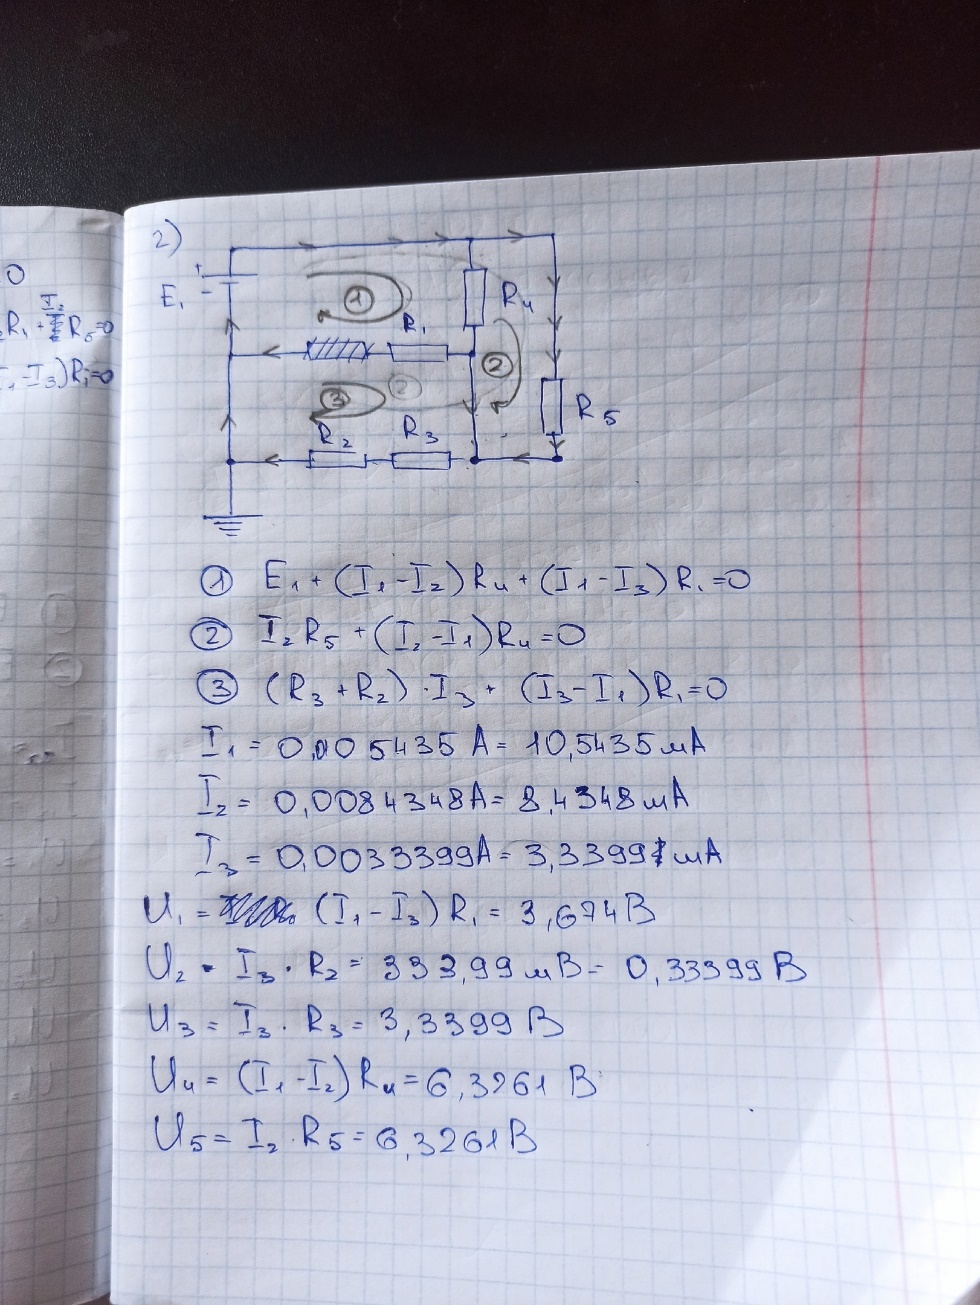 0
R₁ + I₂ R₅=0
-I₃)R₁=0
2)
+
E₁ -
①
R₄
R₁
②
②
③
R₅
R₂ R₃
① E₁ + (I₁ - I₂) R₄ + (I₁ - I₃) R₁ = 0
② I₂ R₅ + (I₂ - I₁) R₄ = 0
③ (R₃ + R₂) · I₃ + (I₃ - I₁) R₁ = 0
I₁ = 0,0105435 A = 10,5435 мА
I₂ = 0,0084348A = 8,4348 мА
I₃ = 0,0033399A = 3,3399 мА
U₁ = (I₁ - I₃) R₁ = 3,674 В
U₂ = I₃ · R₂ = 333,99 мВ = 0,33399 В
U₃ = I₃ · R₃ = 3,3399 В
U₄ = (I₁ - I₂) R₄ = 6,3261 В
U₅ = I₂ · R₅ = 6,3261 В